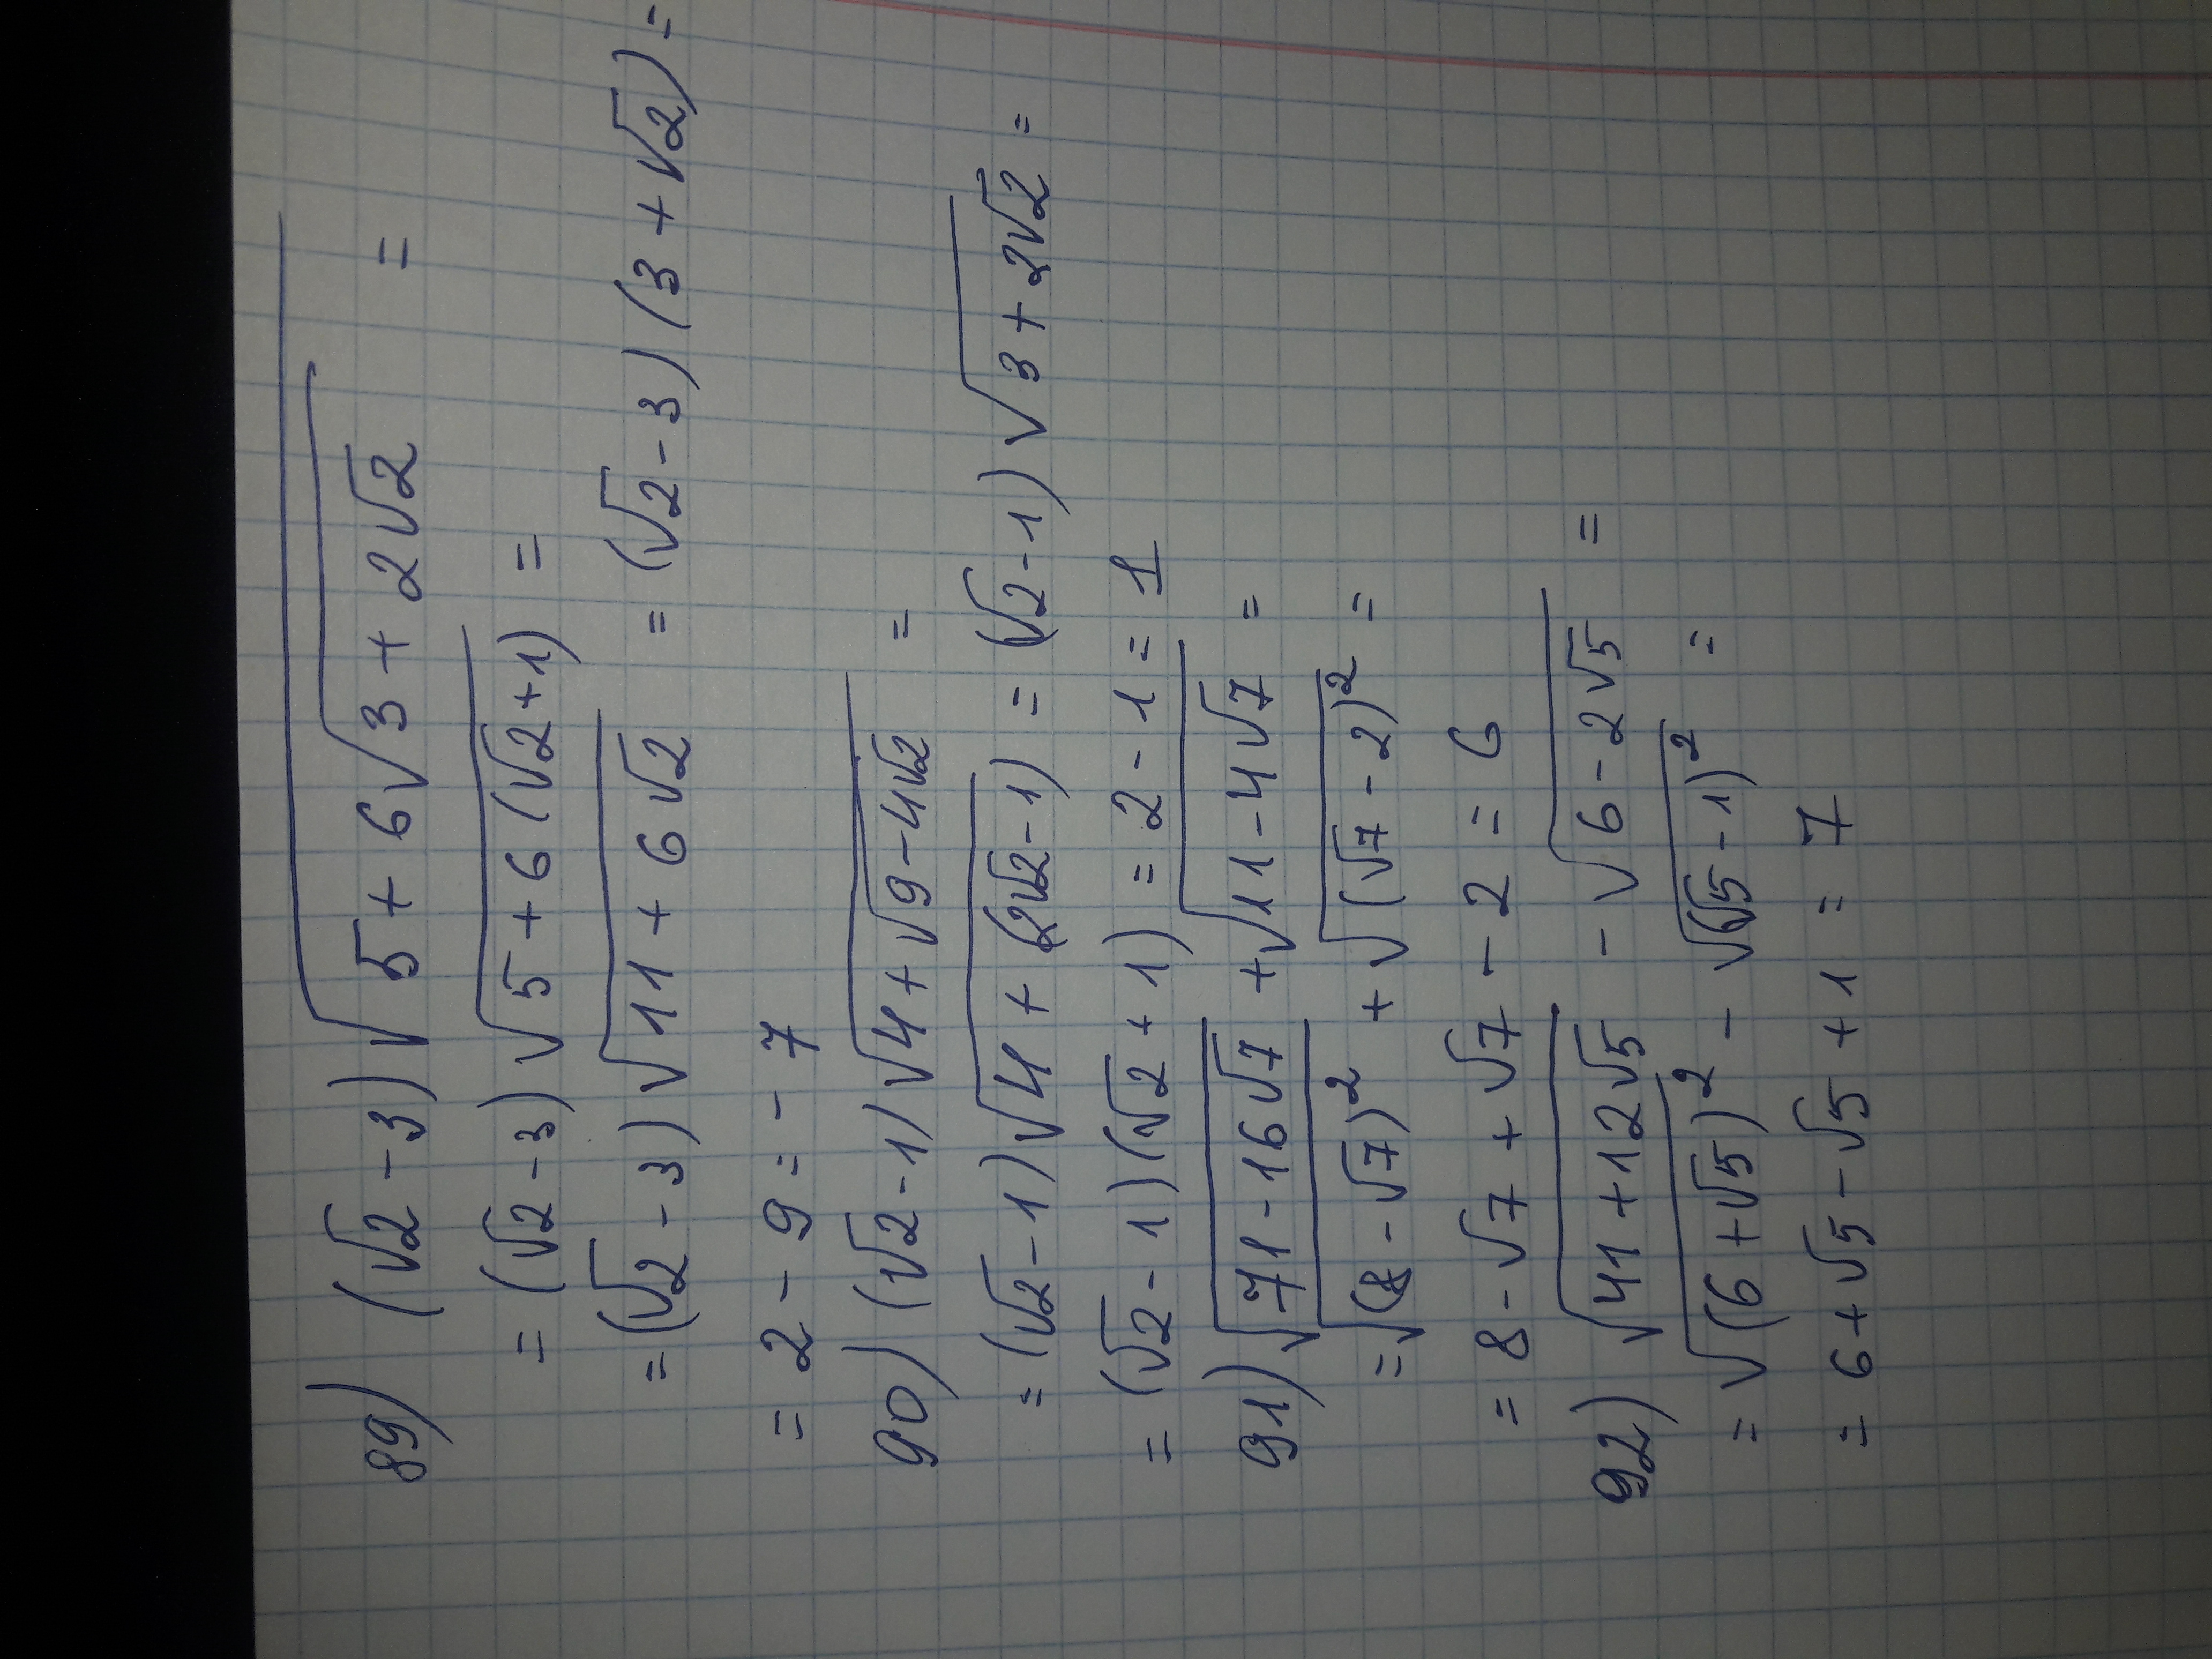 89) (√2 - 3)√(5 + 6√(3 + 2√2)) =
= (√2 - 3)√(5 + 6(√2 + 1)) =
= (√2 - 3)√(11 + 6√2) = (√2 - 3)(3 + √2) =
= 2 - 9 = - 7
90) (√2 - 1)√(4 + √(9 - 4√2)) =
= (√2 - 1)√(4 + (2√2 - 1)) = (√2 - 1)√(3 + 2√2) =
= (√2 - 1)(√2 + 1) = 2 - 1 = 1
91) √(71 - 16√7) + √(11 - 4√7) =
= √((8 - √7)²) + √((√7 - 2)²) =
= 8 - √7 + √7 - 2 = 6
92) √(41 + 12√5) - √(6 - 2√5) =
= √((6 + √5)²) - √((√5 - 1)²) =
= 6 + √5 - √5 + 1 = 7